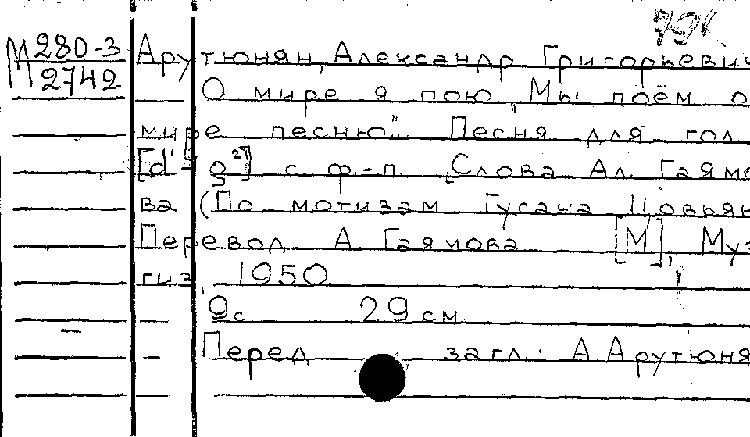 М 280-3
2742
Арутюнян, Александр Григорьевич
О мире я пою „Мы поём о
мире песню". Песня для гол
[d'- g²] с ф-п. Слова Ал. Гаямо
ва (По мотизам Гусана
Перевод А. Гаямова [М], Муз
гиз, 1950
9с 29 см
Перед загл: А Арутюня